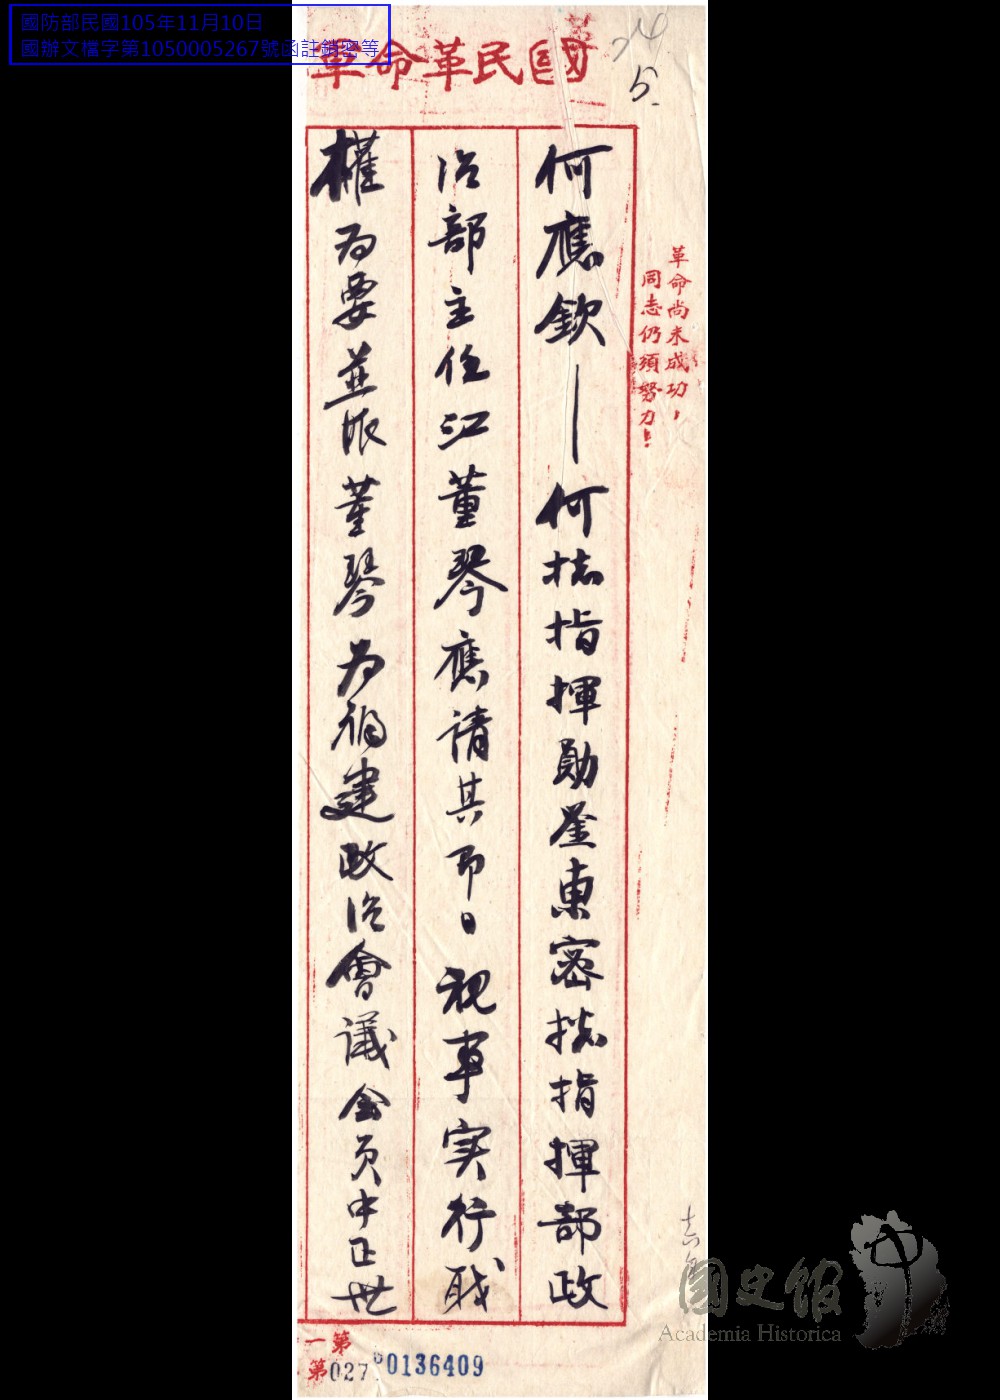 國防部民國105年11月10日
國辦文檔字第1050005267號函註銷密等
國民革命軍
5.
革命尚未成功，
同志仍須努力！
何應欽—何총指揮勛鉴東密총指揮部政
治部主任江董琴應請其即日视事实行职
權为要並派董琴为福建政治會议會员中正世
國史館
Academia Historica
第一
第027
0136409